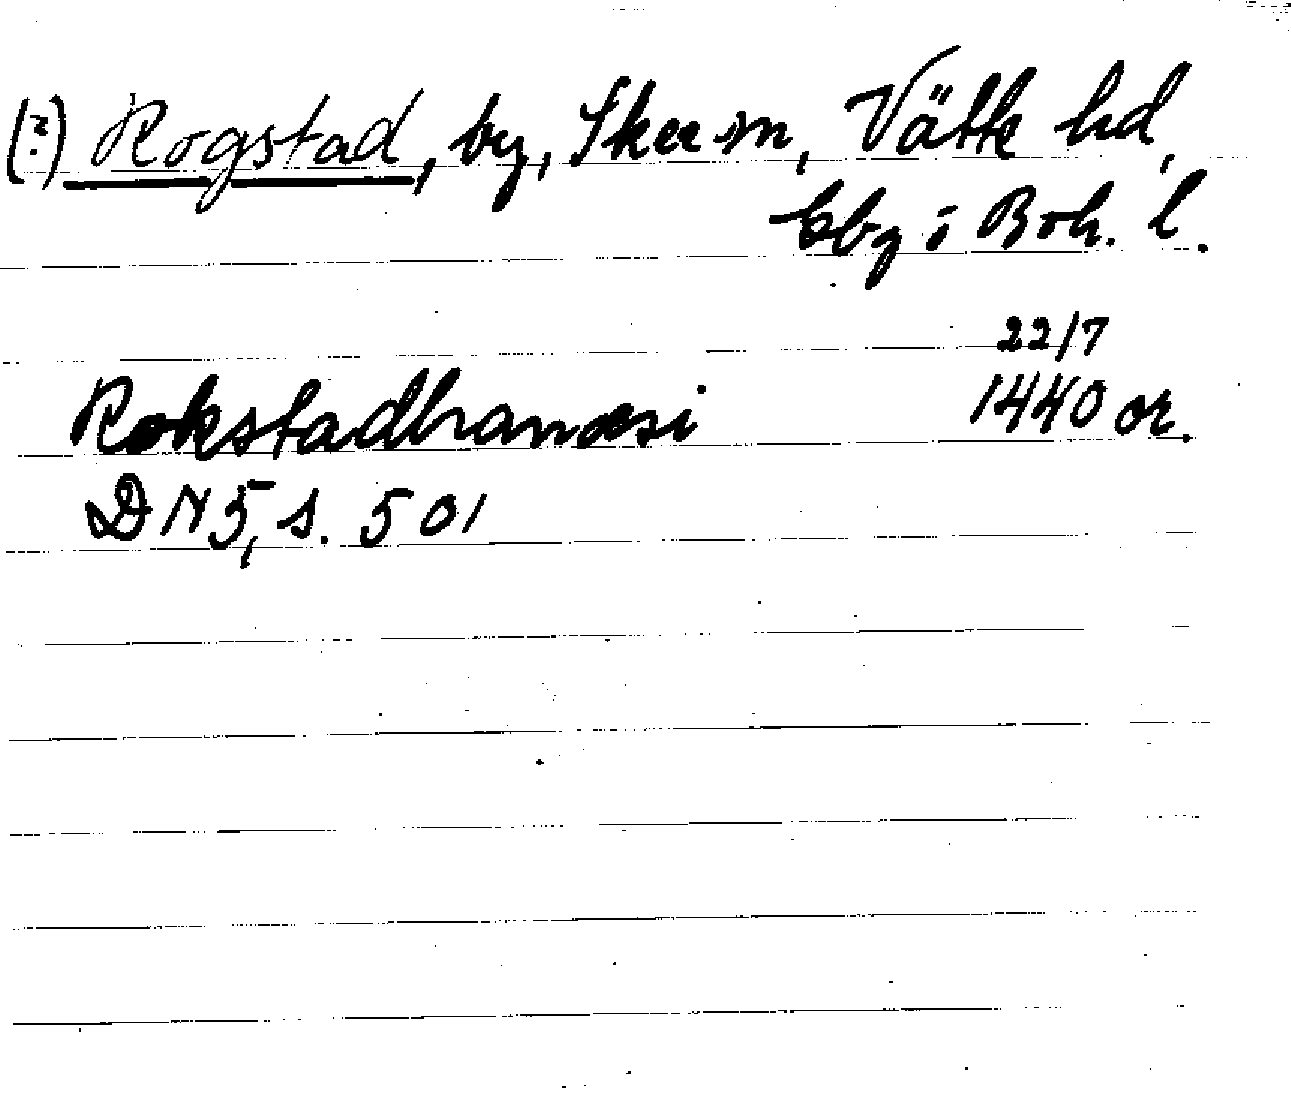 (?) Rogstad, by, Skee sn, Vätte hd,
Gbg i Boh. l.
22/7
Rokstadhanæsi 1440 or.
DN 5, s. 501